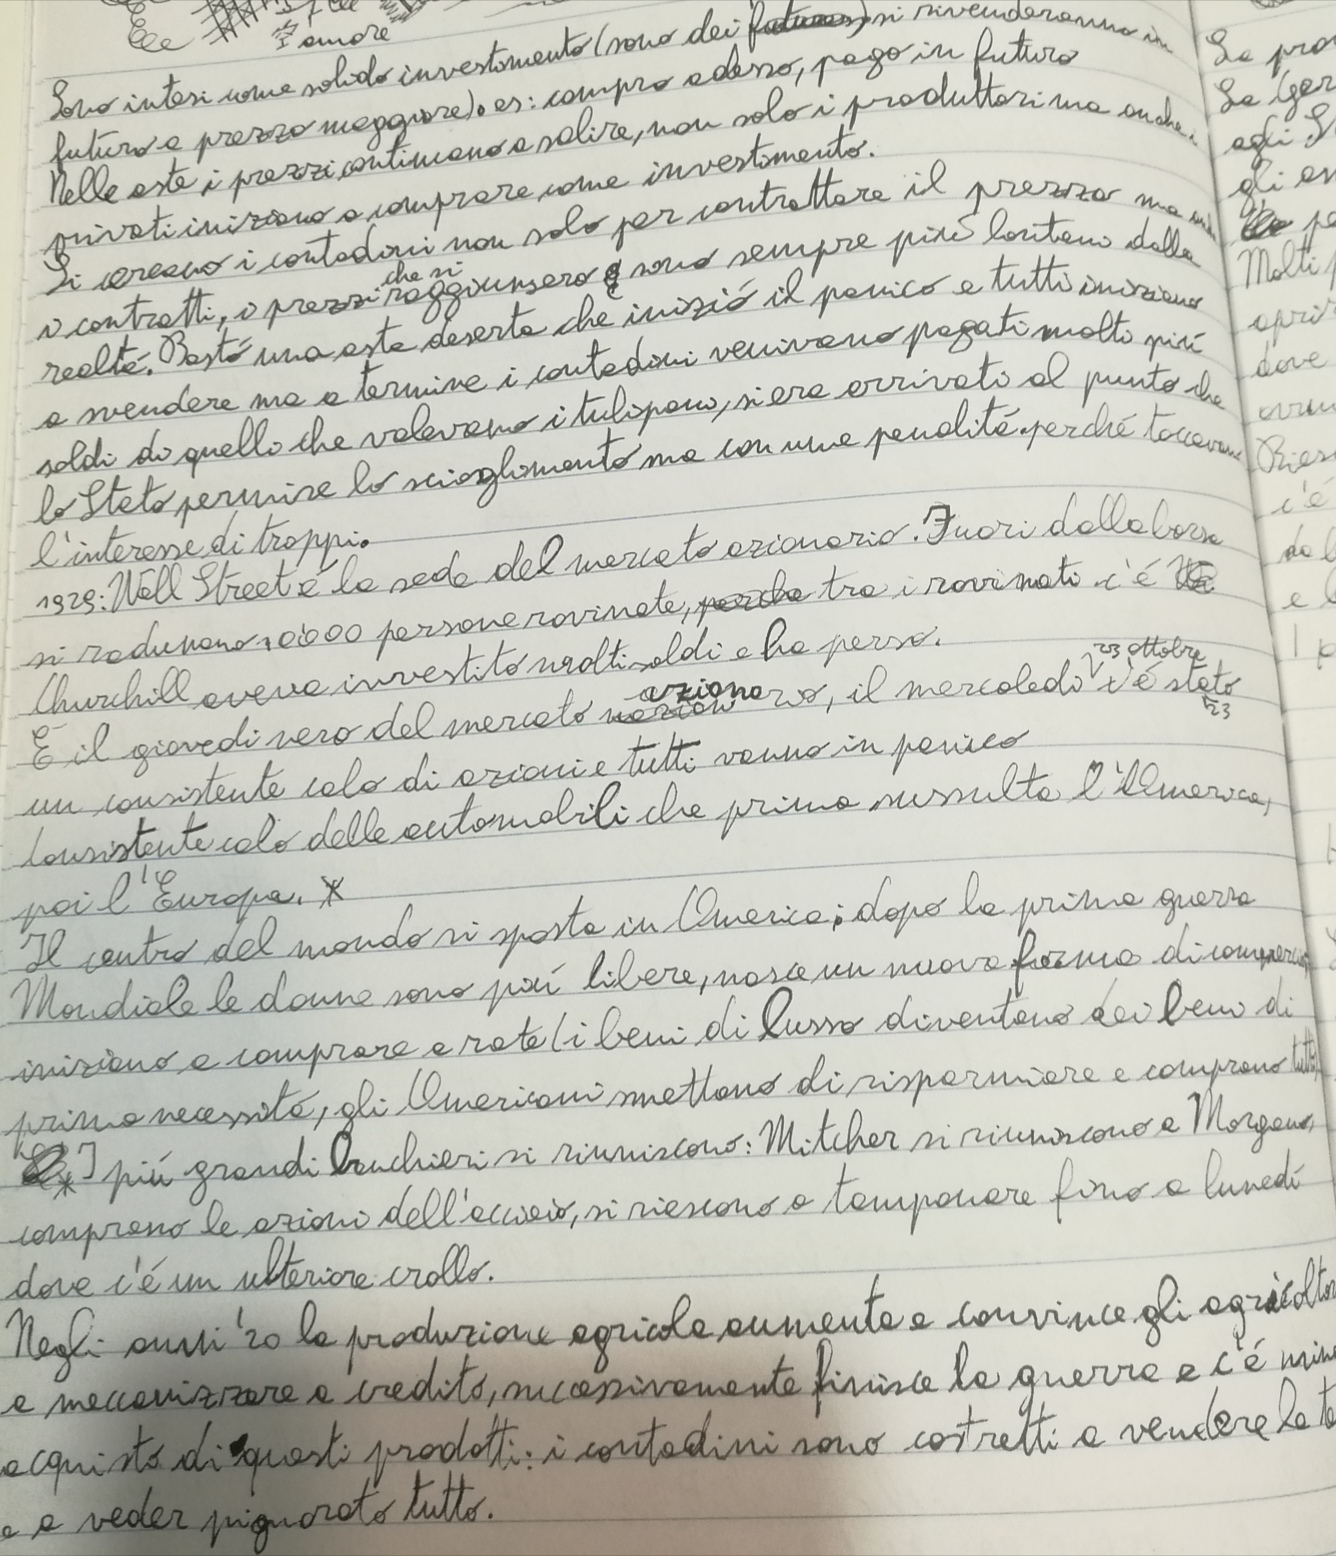 amore
Sono intesi come solido investimento (sono dei futures) si rivenderanno in
futuro a prezzo maggiore). es: compro adesso, pago in futuro
Nelle aste i prezzi continuano a salire, non solo i produttori ma anche i
privati iniziano a comprare come investimento.
Si creano i contadini non solo per contrattare il prezzo ma
i contratti, i prezzi che si raggiunsero sono sempre più lontani dalla
realtá. Bastó una asta deserta che inizió il panico e tutti iniziano
a svendere ma a termine i contadini venivano pagati molti più
soldi di quello che valevano i tulipani, si era arrivati al punto che
lo Stato permise lo scioglimento ma con una penalitá perché toccavano
l'interesse di troppi.
1929: Wall Street é la sede del mercato azionario. Fuori dalla borsa
si radunano 10000 persone rovinate, perché tra i rovinati c'é
Churchill aveva investito molti soldi e ha perso.
23 ottobre
É il giovedì nero del mercato azionario, il mercoledì c'é stato
23
un consistente calo di azioni e tutti vanno in panico
Consistente calo delle automobili che prima sussulta l'America,
poi l'Europa. *
Il centro del mondo si sposta in America; dopo la prima guerra
Mondiale le donne sono più libere, nasce un nuova forma di commercio,
iniziano a comprare a rate (i beni di lusso diventano dei beni di
prima necessitá, gli Americani smettono di risparmiare e comprano tutto)
* I più grandi banchieri si riuniscono: Mitcher si riuniscono a Morgano,
comprano le azioni dell'acciaio, si riescono a tamponare fino a lunedì
dove c'é un ulteriore crollo.
Negli anni '20 la produzione agricola aumenta e convince gli agricoltori
a meccanizzare a credito, successivamente finisce la guerra e c'é
acquisto di questi prodotti: i contadini sono costretti a vendere la
e a veder pignorato tutto.
La
La
agli
gli
Molti
dove
c'é
e